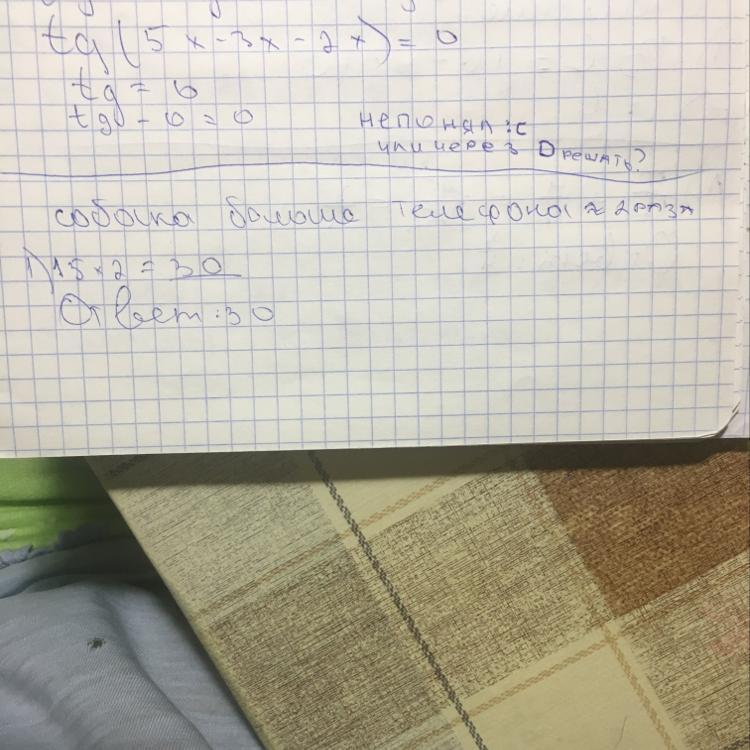 tg(5x-3x-2x)=0
tg = 0
tg - 0 = 0
непонял :с
или через D решать?
собачка больше телефона ≈ 2 раза
1) 15 × 2 = 30
Ответ: 30